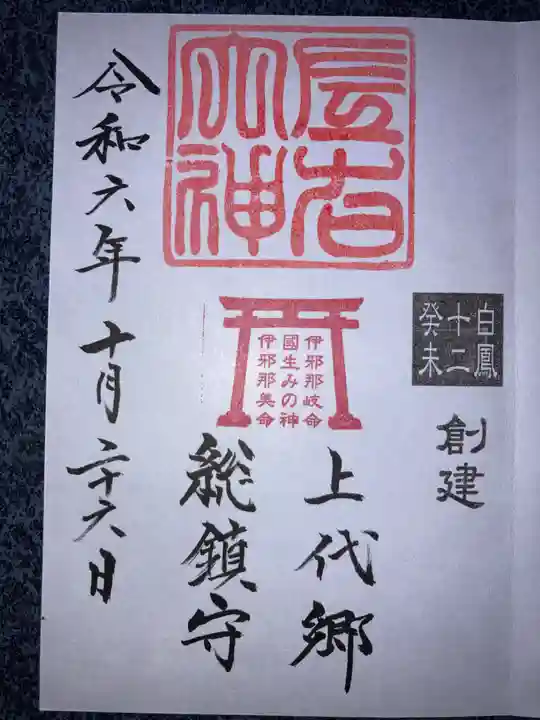 白鳳
十二
癸未
創建
辰尾
大神
伊邪那岐命
國生みの神
伊邪那美命
上代郷
総鎮守
令和六年十月二十六日